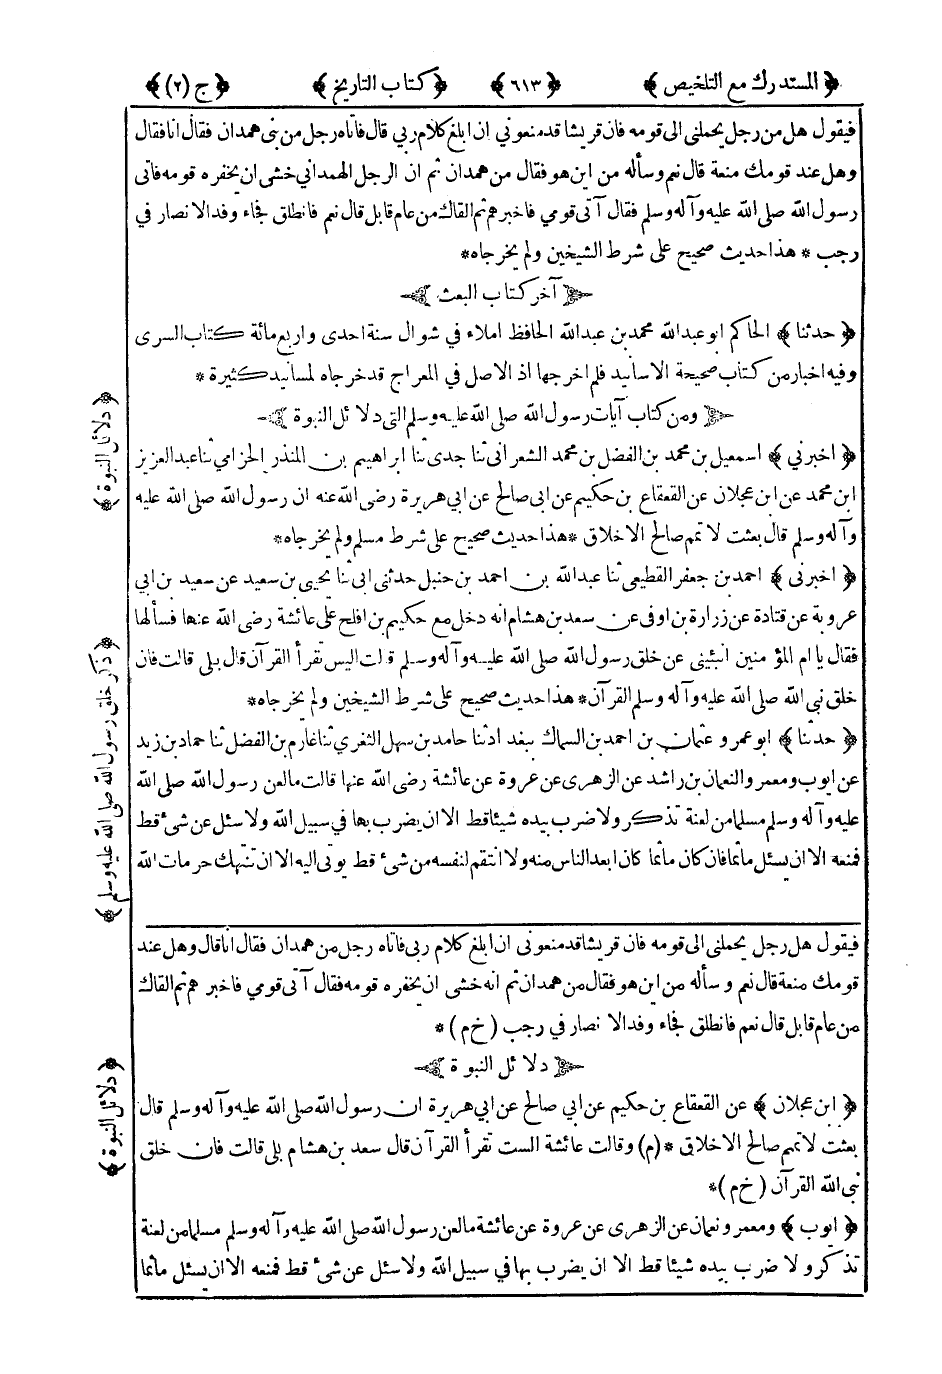 ﴿ المستدرك مع التلخيص ﴾ ﴿ ٦١٣ ﴾ ﴿ كتاب التاريخ ﴾ ﴿ ج (٢) ﴾
فيقول هل من رجل يحملنى الى قومه فان قريشا قد منعونى ان ابلغ كلام ربى قال فاتاه رجل من بنى همدان فقال انا فقال
وهل عند قومك منعة قال نعم وسأله من اين هو فقال من همدان ثم ان الرجل الهمدانى خشى ان يخفره قومه فاتى
رسول الله صلى الله عليه وآله وسلم فقال آتى قومي فاخبرهم ثم القاك من عام قابل قال نعم فانطلق فجاء وفد الانصار في
رجب * هذا حديث صحيح على شرط الشيخين ولم يخرجاه*
آخر كتاب البعث
﴿ حدثنا ﴾ الحاكم ابو عبد الله محمد بن عبد الله الحافظ املاء في شوال سنة احدى واربع مائة كتاب السرى
وفيه اخبار من كتاب صحيحة الاسانيد فلم اخرجها اذ الاصل في المعراج قد خرجاه لمسانيد كثيرة *
ومن كتاب آيات رسول الله صلى الله عليه وسلم التى دلائل النبوة
﴿ دلائل النبوة ﴾
﴿ اخبرني ﴾ اسمعيل بن محمد بن الفضل بن محمد الشعرانى ثنا جدى ثنا ابراهيم بن المنذر الحزامي ثنا عبد العزيز
ابن محمد عن ابن عجلان عن القعقاع بن حكيم عن ابى صالح عن ابي هريرة رضى الله عنه ان رسول الله صلى الله عليه
وآله وسلم قال بعثت لاتمم صالح الاخلاق *هذا حديث صحيح على شرط مسلم ولم يخرجاه*
﴿ اخبرنى ﴾ احمد بن جعفر القطيعى ثنا عبد الله بن احمد بن حنبل حدثنى ابى ثنا يحيى بن سعيد عن سعيد بن ابي
عروبة عن قتادة عن زرارة بن اوفى عن سعد بن هشام انه دخل مع حكيم بن افلح على عائشة رضى الله عنها فسألها
فقال يا ام المؤمنين انبئينى عن خلق رسول الله صلى الله عليه وآله وسلم قالت اليس تقرأ القرآن قال بلى قالت فان
خلق نبى الله صلى الله عليه وآله وسلم القرآن* هذا حديث صحيح على شرط الشيخين ولم يخرجاه*
﴿ ذكر خلق رسول الله صلى الله عليه وسلم ﴾
﴿ حدثنا ﴾ ابو عمرو عثمان بن احمد بن السماك ببغداد ثنا حامد بن سهل الثغري ثنا عارم بن الفضل ثنا حماد بن زيد
عن ايوب ومعمر والنعمان بن راشد عن الزهرى عن عروة عن عائشة رضى الله عنها قالت ما لعن رسول الله صلى الله
عليه وآله وسلم مسلما من لعنة تذكر ولا ضرب بيده شيئا قط الا ان يضرب بها في سبيل الله ولا سئل عن شىء قط
فمنعه الا ان يسئل مأثما فان كان مأثما كان ابعد الناس منه ولا انتقم لنفسه من شىء قط يوتى اليه الا ان تنتهك حرمات الله
فيقول هل رجل يحملنى الى قومه فان قريشا قد منعونى ان ابلغ كلام ربى فاتاه رجل من همدان فقال انا قال وهل عند
قومك منعة قال نعم وسأله من اين هو فقال من همدان ثم انه خشى ان يخفره قومه فقال آتى قومي فاخبرهم ثم القاك
من عام قابل قال نعم فانطلق فجاء وفد الانصار في رجب (خ م) *
دلائل النبوة
﴿ دلائل النبوة ﴾
﴿ ابن عجلان ﴾ عن القعقاع بن حكيم عن ابي صالح عن ابي هريرة ان رسول الله صلى الله عليه وآله وسلم قال
بعثت لاتمم صالح الاخلاق *(م) وقالت عائشة الست تقرأ القرآن قال سعد بن هشام بلى قالت فان خلق
نبى الله القرآن (خ م)*
﴿ ايوب ﴾ ومعمر ونعمان عن الزهرى عن عروة عن عائشة ما لعن رسول الله صلى الله عليه وآله وسلم مسلما من لعنة
تذكر ولا ضرب بيده شيئا قط الا ان يضرب بها في سبيل الله ولا سئل عن شىء قط فمنعه الا ان يسئل مأثما